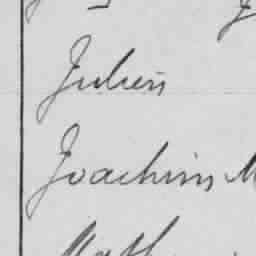 Julien
Joachim M
Math